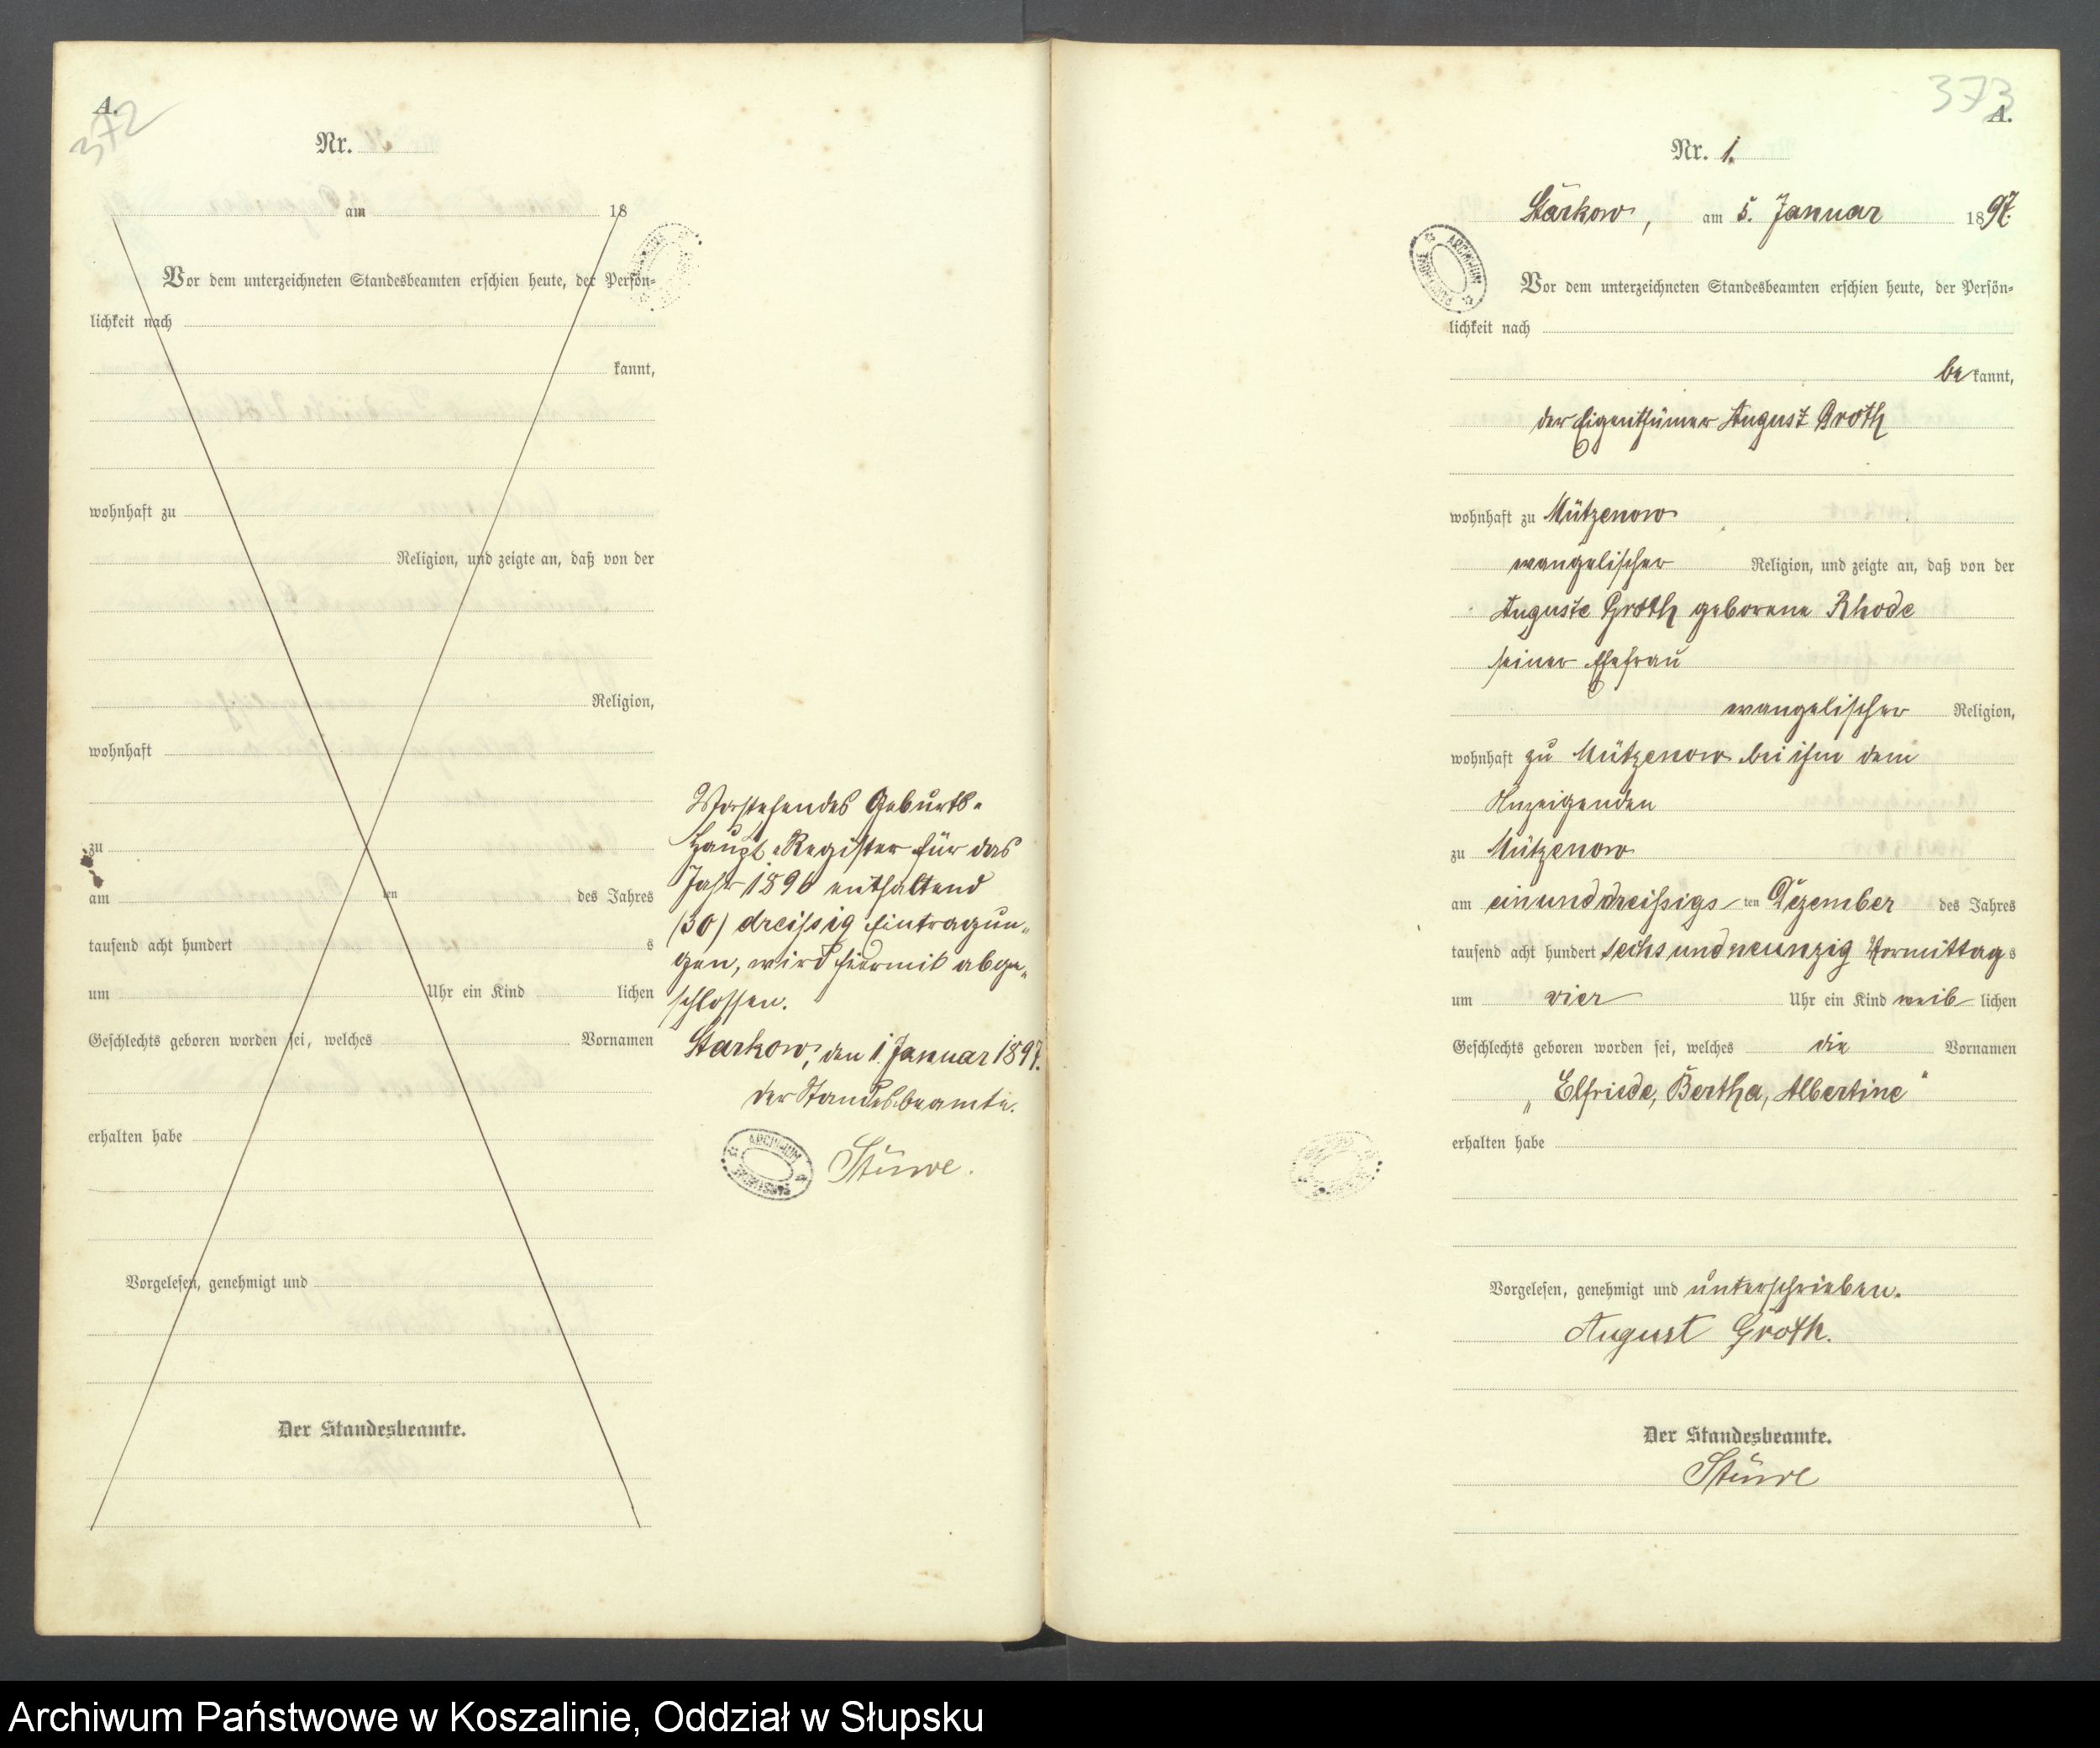 A.
372
Nr.
am 18
Vor dem unterzeichneten Standesbeamten erschien heute, der Persön-
lichkeit nach
kannt,
wohnhaft zu
Religion, und zeigte an, daß von der
Religion,
wohnhaft
zu
am ten des Jahres
tausend acht hundert s
um Uhr ein Kind lichen
Geschlechts geboren worden sei, welches Vornamen
erhalten habe
Vorgelesen, genehmigt und
Der Standesbeamte.
Vorstehendes Geburts-
Haupt-Register für das
Jahr 1896 enthaltend
(30) dreissig Eintragun-
gen, wird hiermit abge-
schlossen.
Starkow, den 1. Januar 1897.
der Standesbeamte.
ARCHIWUM
Stüwe.
373
A.
Nr. 1.
Starkow, am 5. Januar 1897.
ARCHIWUM
Vor dem unterzeichneten Standesbeamten erschien heute, der Persön-
lichkeit nach
bekannt,
der Eigenthümer August Groth
wohnhaft zu Mützenow
evangelischer Religion, und zeigte an, daß von der
Auguste Groth geborene Rhode
seiner Ehefrau
evangelischer Religion,
wohnhaft zu Mützenow bei ihm dem
Anzeigenden
zu Mützenow
am einunddreissigs ten Dezember des Jahres
tausend acht hundert sechsundneunzig Vormittags
um vier Uhr ein Kind weiblichen
Geschlechts geboren worden sei, welches die Vornamen
„Elfriede, Bertha, Albertine"
erhalten habe
Vorgelesen, genehmigt und unterschrieben.
August Groth.
Der Standesbeamte.
Stüwe
Archiwum Państwowe w Koszalinie, Oddział w Słupsku